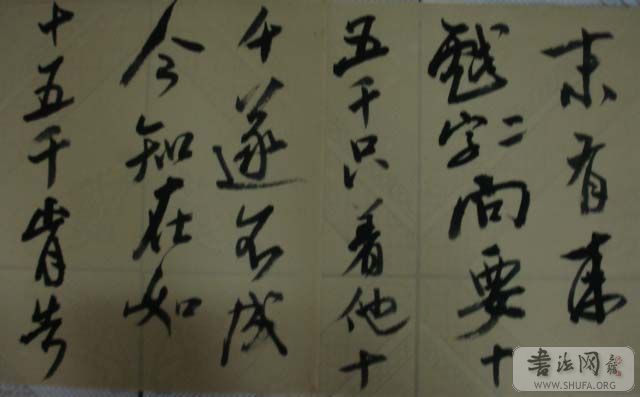 末有東
戬字二向要十
五千只着他十
千遂不成
今知在如
十五千肯告
書法网
WWW.SHUFA.ORG